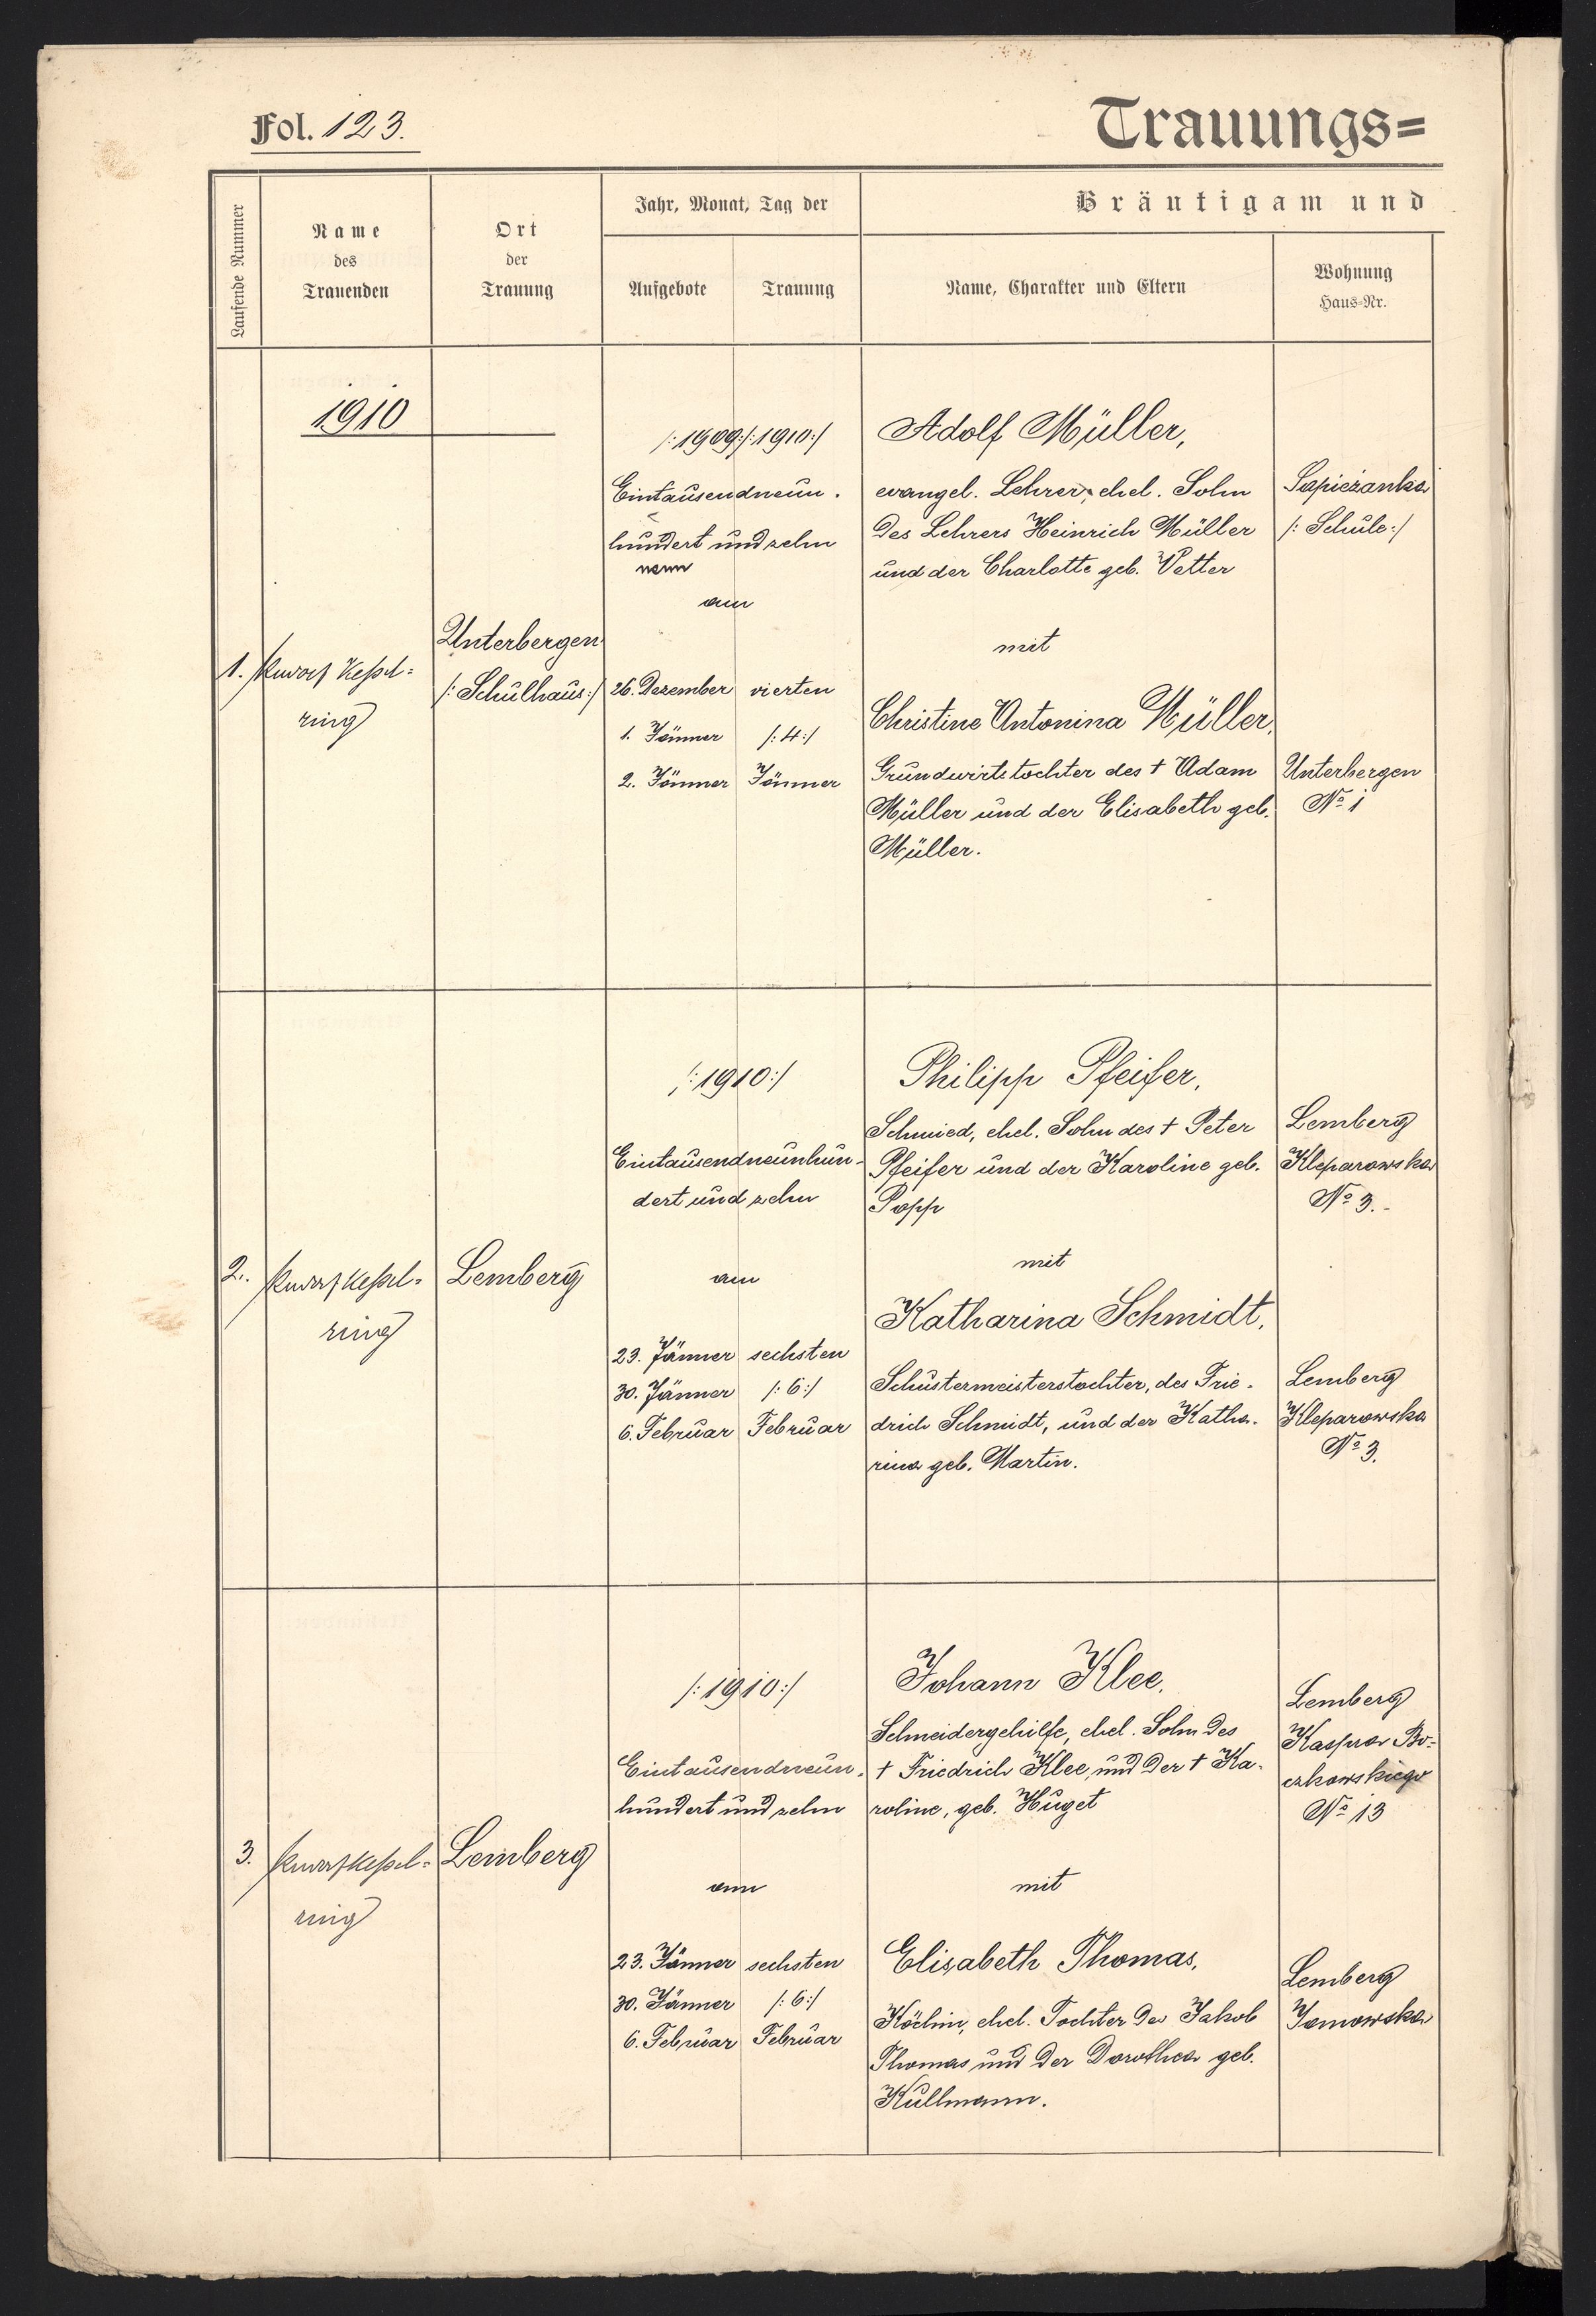 Fol. 123.
Trauungs=
Laufende Nummer
Name
des
Trauenden
Ort
der
Trauung
Jahr, Monat, Tag der
Aufgebote
Trauung
Bräutigam und
Name, Charakter und Eltern
Wohnung
Haus-Nr.
1910
1.
Keßel=
ring
Unterbergen
/: Schulhaus :/
/: 1909 :/: 1910 :/
Eintausendneun.
hundert und zehn
neun
am
26. Dezember vierten
1. Jänner /: 4 :/
2. Jänner Jänner
Adolf Müller,
evangel. Lehrer, ehel. Sohn
des Lehrers Heinrich Müller
und der Charlotte geb. Vetter
mit
Christine Antonina Müller,
Grundwirtstochter des † Adam
Müller und der Elisabeth geb.
Müller.
Sapieżanka
/: Schule :/
Unterbergen
No 1
2.
Keßel=
ring
Lemberg
/: 1910 :/
Eintausendneunhun-
dert und zehn
am
23. Jänner sechsten
30. Jänner /: 6 :/
6. Februar Februar
Philipp Pfeifer,
Schmied, ehel. Sohn des † Peter
Pfeifer und der Karoline geb.
Popp
mit
Katharina Schmidt,
Schustermeisterstochter, des Frie-
drich Schmidt, und der Katha-
rina geb. Martin.
Lemberg
Kleparowska
No 3.-
Lemberg
Kleparowska
No 3.
3.
Keßel=
ring
Lemberg
/: 1910 :/
Eintausendneun.
hundert und zehn
am
23. Jänner sechsten
30. Jänner /: 6 :/
6. Februar Februar
Johann Klee,
Schneidergehilfe, ehel. Sohn des
† Friedrich Klee, und der † Ka-
roline, geb. Huget
mit
Elisabeth Thomas,
Köchin, ehel. Tochter des Jakob
Thomas und der Dorothea geb.
Kullmann.
Lemberg
Kaspra Bo-
czkowskiego
No 13
Lemberg
Janowska